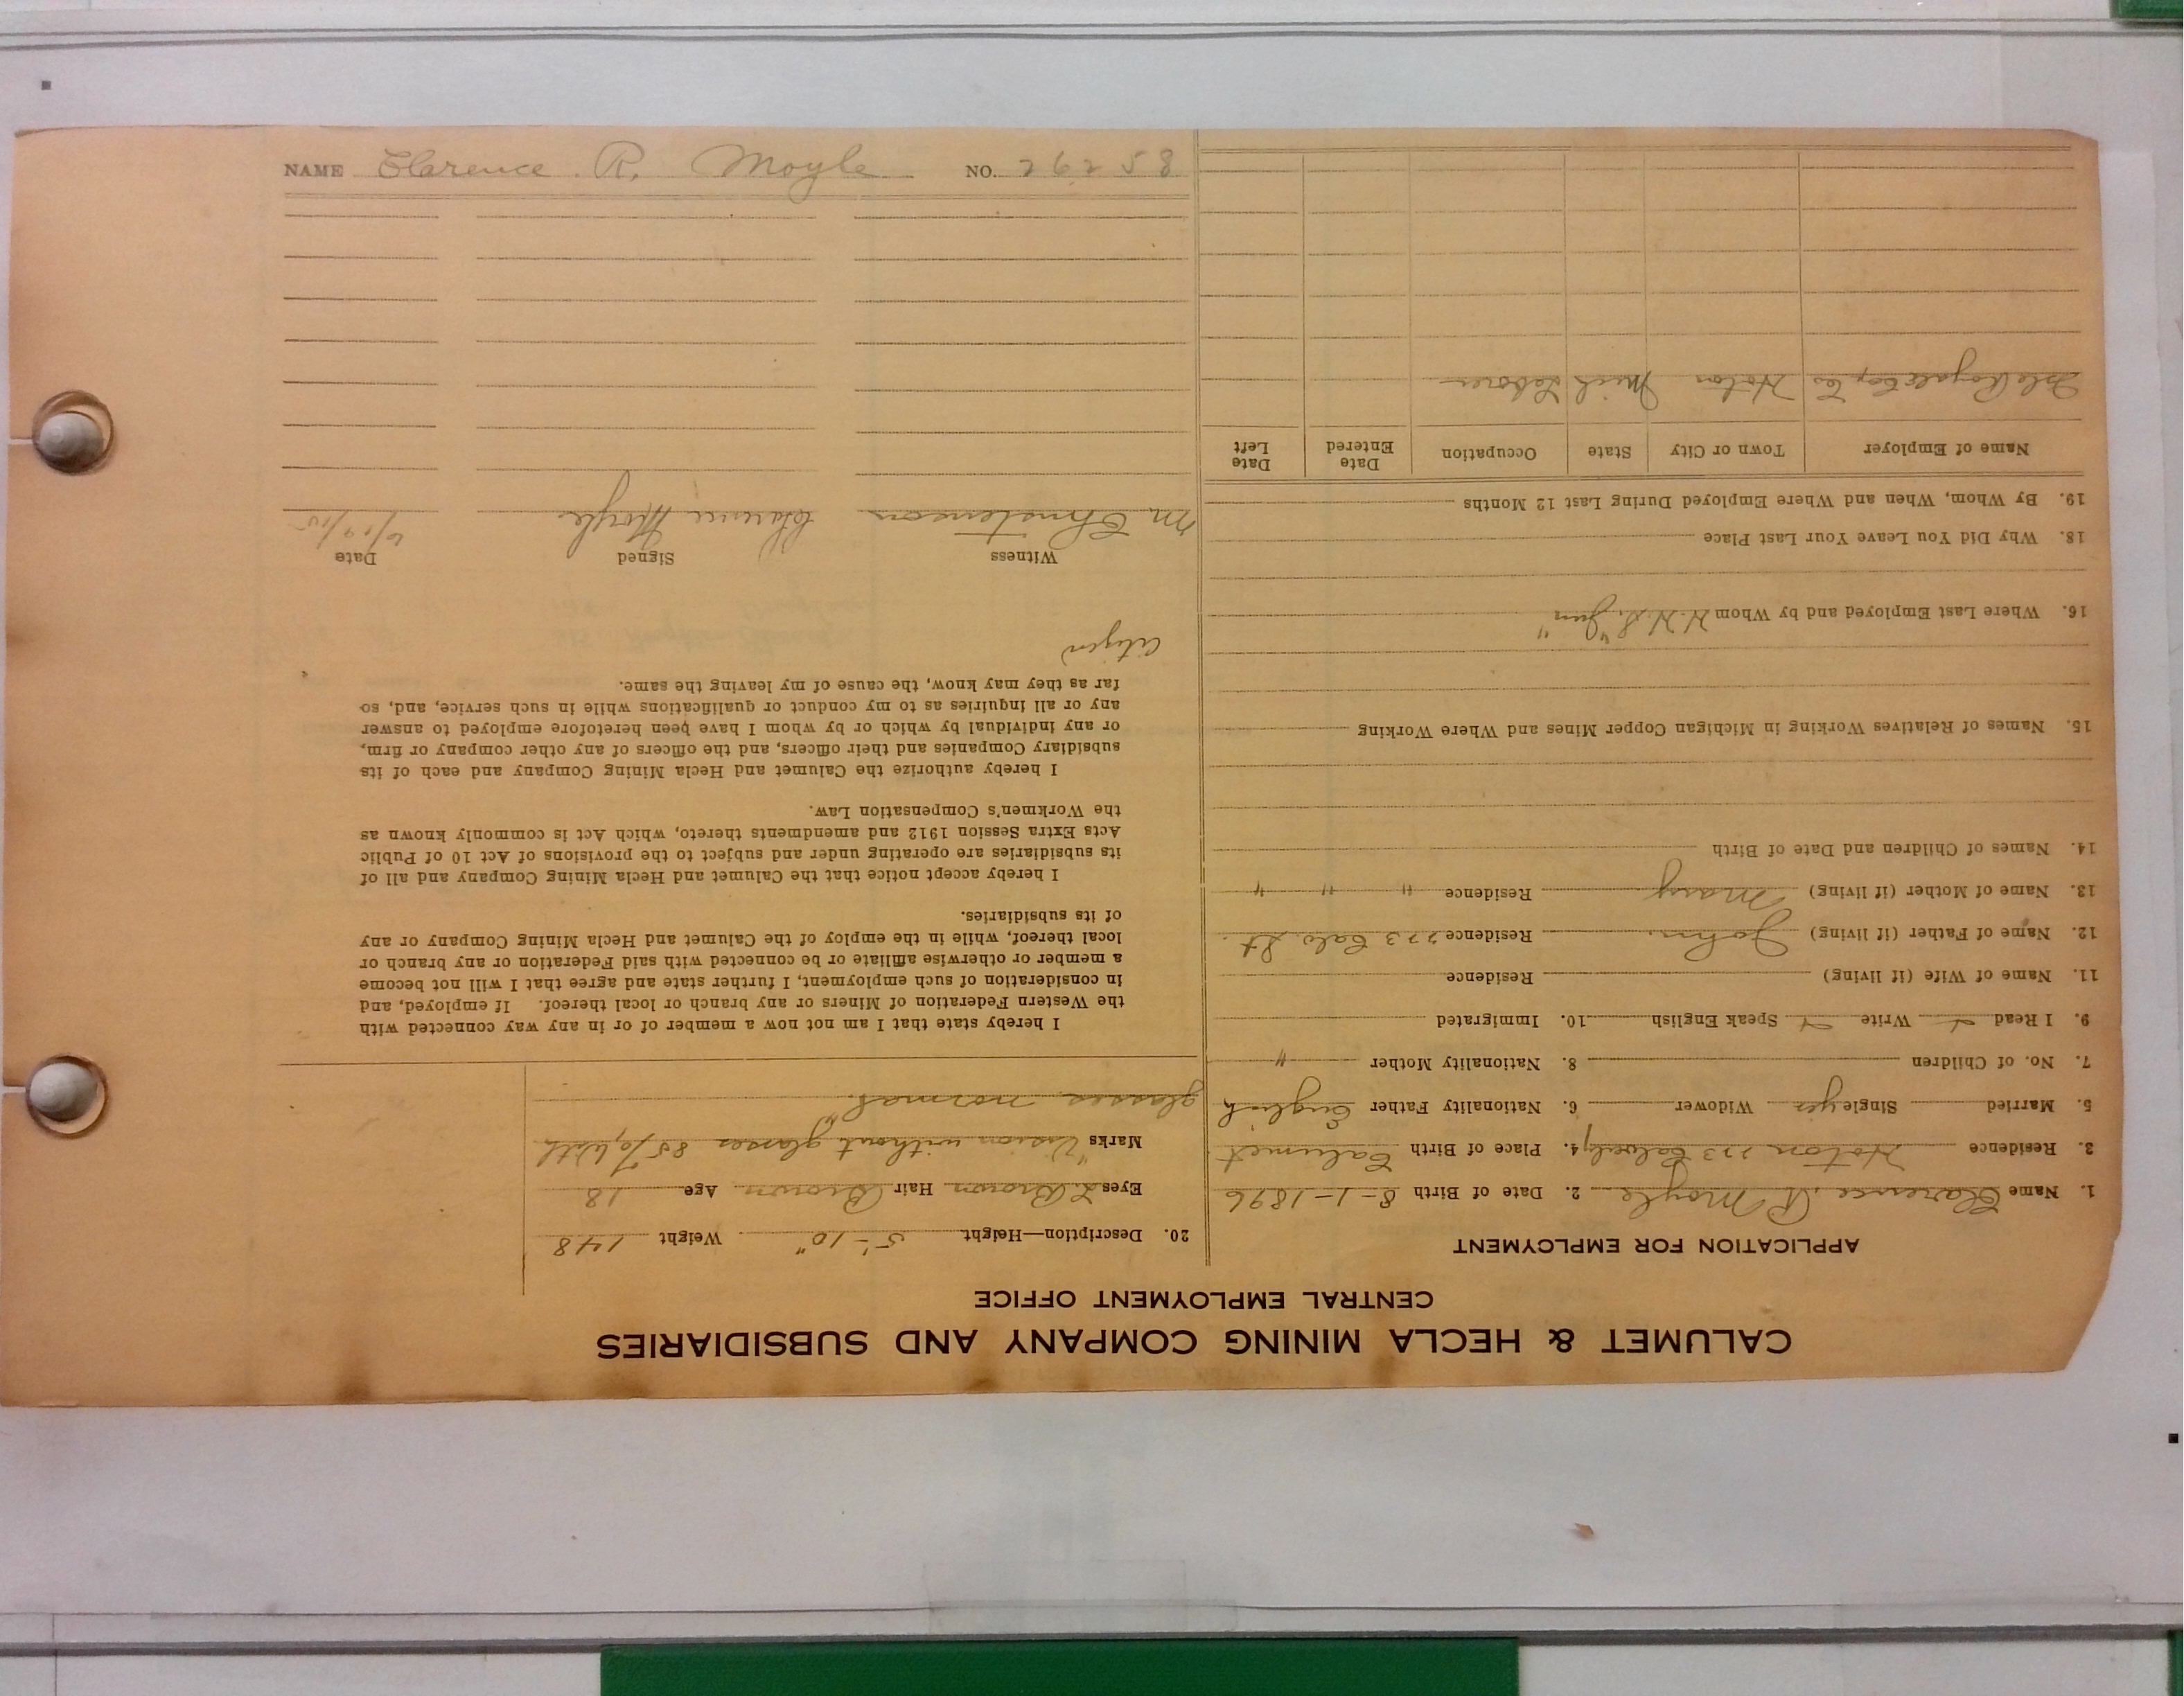 NAME Clarence R. Moyle NO. 26258
CALUMET & HECLA MINING COMPANY AND SUBSIDIARIES
CENTRAL EMPLOYMENT OFFICE
APPLICATION FOR EMPLOYMENT
1. Name Clarence R Moyle 2. Date of Birth 8-1-1896
3. Residence Hoton 223 4. Place of Birth Calumet
5. Married Single yes Widower 6. Nationality Father English
7. No. of Children 8. Nationality Mother "
9. I Read Write Speak English 10. Immigrated
11. Name of Wife (if living) Residence
12. Name of Father (if living) John Residence 223 Calv. St.
13. Name of Mother (if living) Mary Residence " " "
14. Names of Children and Date of Birth
15. Names of Relatives Working in Michigan Copper Mines and Where Working
16. Where Last Employed and by Whom H.H.S.
18. Why Did You Leave Your Last Place
19. By Whom, When and Where Employed During Last 12 Months
Name of Employer Town or City State Occupation Date Entered Date Left
Isle Royale Cop Co Hoton Mich Laborer
20. Description—Height 5'-10" Weight 148
Eyes L Brown Hair Brown Age 18
Marks "Vision without glasses 85% With
glasses normal"
I hereby state that I am not now a member of or in any way connected with
the Western Federation of Miners or any branch or local thereof. If employed, and
in consideration of such employment, I further state and agree that I will not become
a member or otherwise affiliate or be connected with said Federation or any branch or
local thereof, while in the employ of the Calumet and Hecla Mining Company or any
of its subsidiaries.
I hereby accept notice that the Calumet and Hecla Mining Company and all of
its subsidiaries are operating under and subject to the provisions of Act 10 of Public
Acts Extra Session 1912 and amendments thereto, which Act is commonly known as
the Workmen's Compensation Law.
I hereby authorize the Calumet and Hecla Mining Company and each of its
subsidiary Companies and their officers, and the officers of any other company or firm,
or any individual by which or by whom I have been heretofore employed to answer
any or all inquiries as to my conduct or qualifications while in such service, and, so
far as they may know, the cause of my leaving the same.
Citizen
Witness Signed Date
M Christenson Clarence Moyle